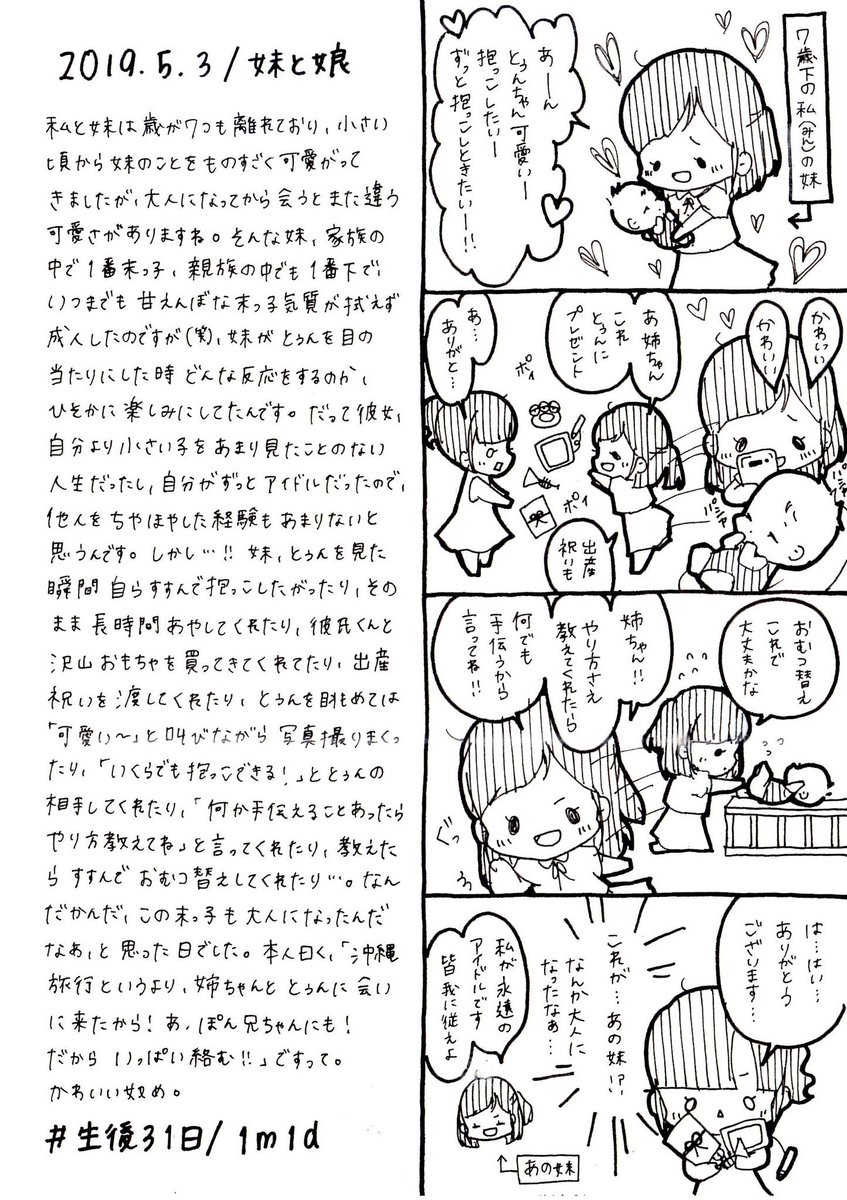 2019.5.3/妹と娘
私と妹は歳が7つも離れており、小さい
頃から妹のことをものすごく可愛がって
きましたが、大人になってから会うとまた違う
可愛さがありますね。そんな妹、家族の
中で1番末っ子、親族の中でも1番下で、
いつまでも甘えんぼな末っ子気質が拭えず
成人したのですが(笑)、妹がとぅんを目の
当たりにした時どんな反応をするのか、
ひそかに楽しみにしてたんです。だって彼女、
自分より小さい子をあまり見たことのない
人生だったし、自分がずっとアイドルだったので、
他人をちやほやした経験もあまりないと
思うんです。しかし…!!妹、とぅんを見た
瞬間自らすすんで抱っこしたがったり、その
まま長時間あやしてくれたり、彼氏くんと
沢山おもちゃを買ってきてくれてたり、出産
祝いを渡してくれたり、とぅんを眺めては
「可愛い〜」と叫びながら写真撮りまくっ
たり、「いくらでも抱っこできる!」ととぅんの
相手してくれたり、「何か手伝えることあったら
やり方教えてね」と言ってくれたり、教えた
らすすんでおむつ替えしてくれたり…。なん
だかんだ、この末っ子も大人になったんだ
なぁ、と思った日でした。本人曰く、「沖縄
旅行というより、姉ちゃんととぅんに会い
に来たから!あ、ぽん兄ちゃんにも!
だからいっぱい絡む!!」ですって。
かわいい奴め。
#生後31日/1m1d
7歳下の私(みん)の妹
あーん
とぅんちゃん可愛いー
抱っこしたいー
ずっと抱っこしときたいー!!
かわいい
かわいい
パシャ
パシャ
あ姉ちゃん
これ
とぅんに
プレゼント
ポイ
ポイ
出産
祝いも
あ…
ありがと…
おむつ替え
これで
大丈夫かな
姉ちゃん!!
やり方さえ
教えてくれたら
何でも
手伝うから
言ってね!!
ぐっ
は…はい…
ありがとう
ございます…
これが…あの妹!?
なんか大人に
なったなぁ…
私が永遠の
アイドルです
皆我に従えよ
あの妹